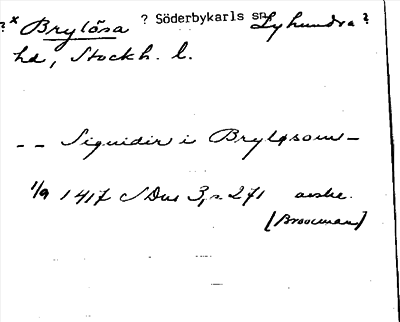 ?* Brylösa ? Söderbykarls sn Lyhundra ?
hd, Stockh. l.
-- Siguidir i Bryløsom-
1/9 1417 SDns 3, s. 271 avskr.
[Broocman]